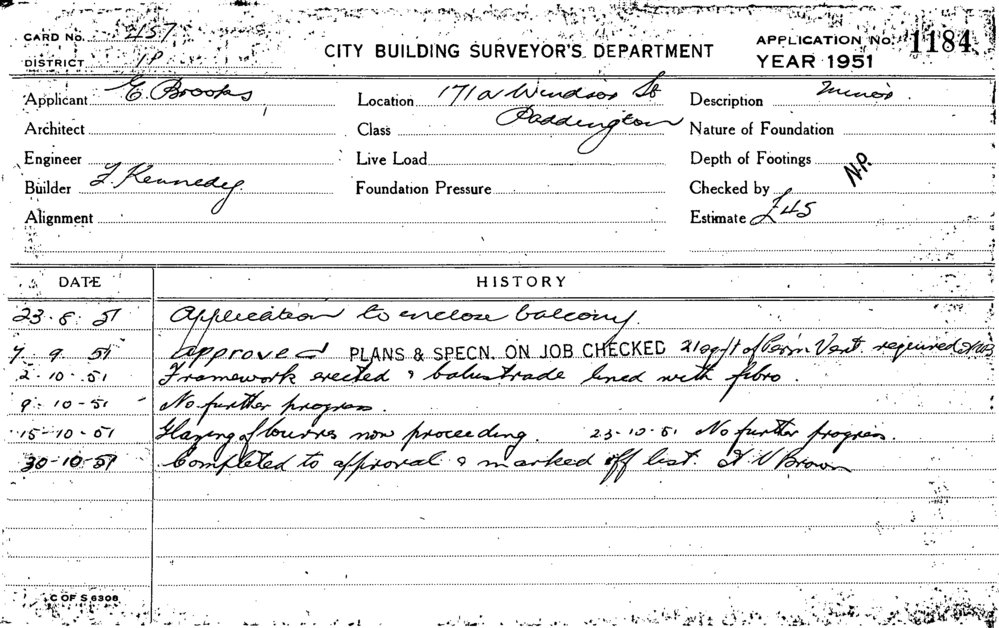 CARD No. 2157
DISTRICT 1P
CITY BUILDING SURVEYOR'S DEPARTMENT
APPLICATION No. 1184
YEAR 1951
Applicant E. Brooks
Location 171a Windsor St
Paddington
Description Minor
Architect
Class
Nature of Foundation
Engineer
Live Load
Depth of Footings
N.P.
Builder F. Kennedy
Foundation Pressure
Checked by
Alignment
Estimate £45
DATE HISTORY
23.8.51 Application to enclose balcony.
7.9.51 approved PLANS & SPECN. ON JOB CHECKED 21 sq/ft of Perm Vent. required
2-10-51 Framework erected & balustrade lined with fibro.
9-10-51 No further progress.
15-10-51 Glazing of louvres now proceeding. 23-10-51 No further progress.
30-10-51 Completed to approval & marked off list. H V Brown
C OF S 6308